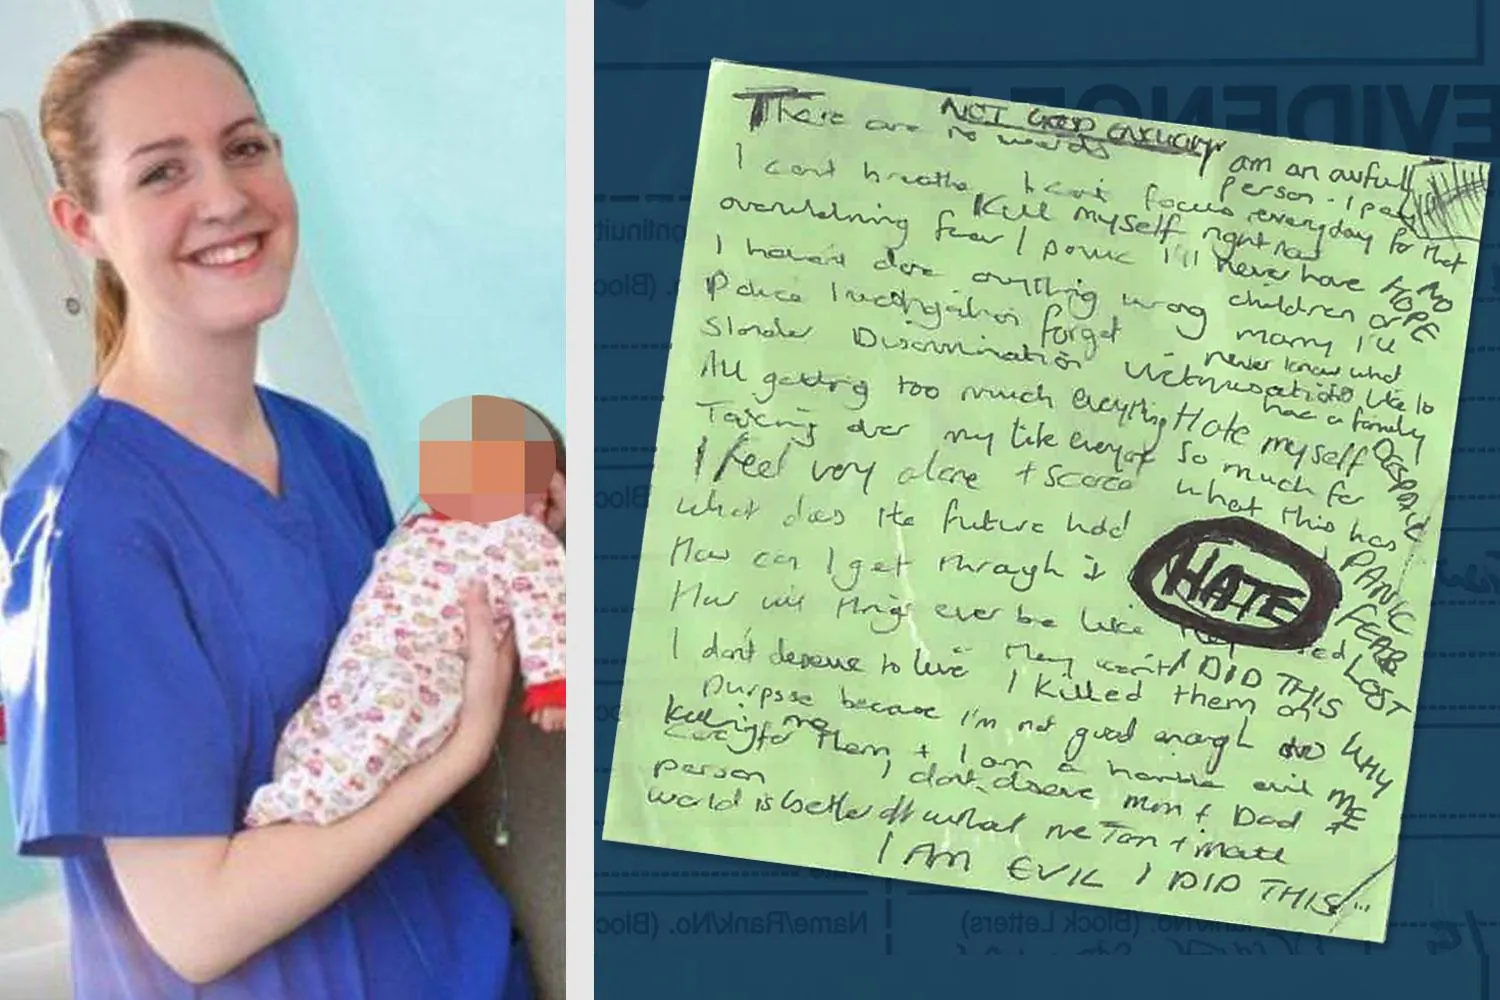 NOT GOOD ENOUGH
There are no words
am an awful
person - I pay
everyday for that
I can't breathe I can't focus
Kill myself right now
overwhelming fear I panic I'll never have
children or
marry I'll
never know what
like to
had a family
NO
HOPE
I haven't done anything wrong
Police Investigation forget
Slander Discrimination
All getting too much everything
Hate myself
so much for
what this has
DESPAIR
PANIC
FEAR
LOST
Taking over my life
I feel very alone + scared
What does the future hold
How can I get through it
HATE
How will things ever be like
I don't deserve to live
I DID THIS
I killed them on
purpose because I'm not good enough to
care for them + I am a horrible evil
person
killing me
WHY
ME
I don't deserve mum + Dad
world is better off without me Tom + Matt
I AM EVIL I DID THIS
EVIDENCE
(Block
(Block
(Block Letters)
Name/Rank/No.
(Block